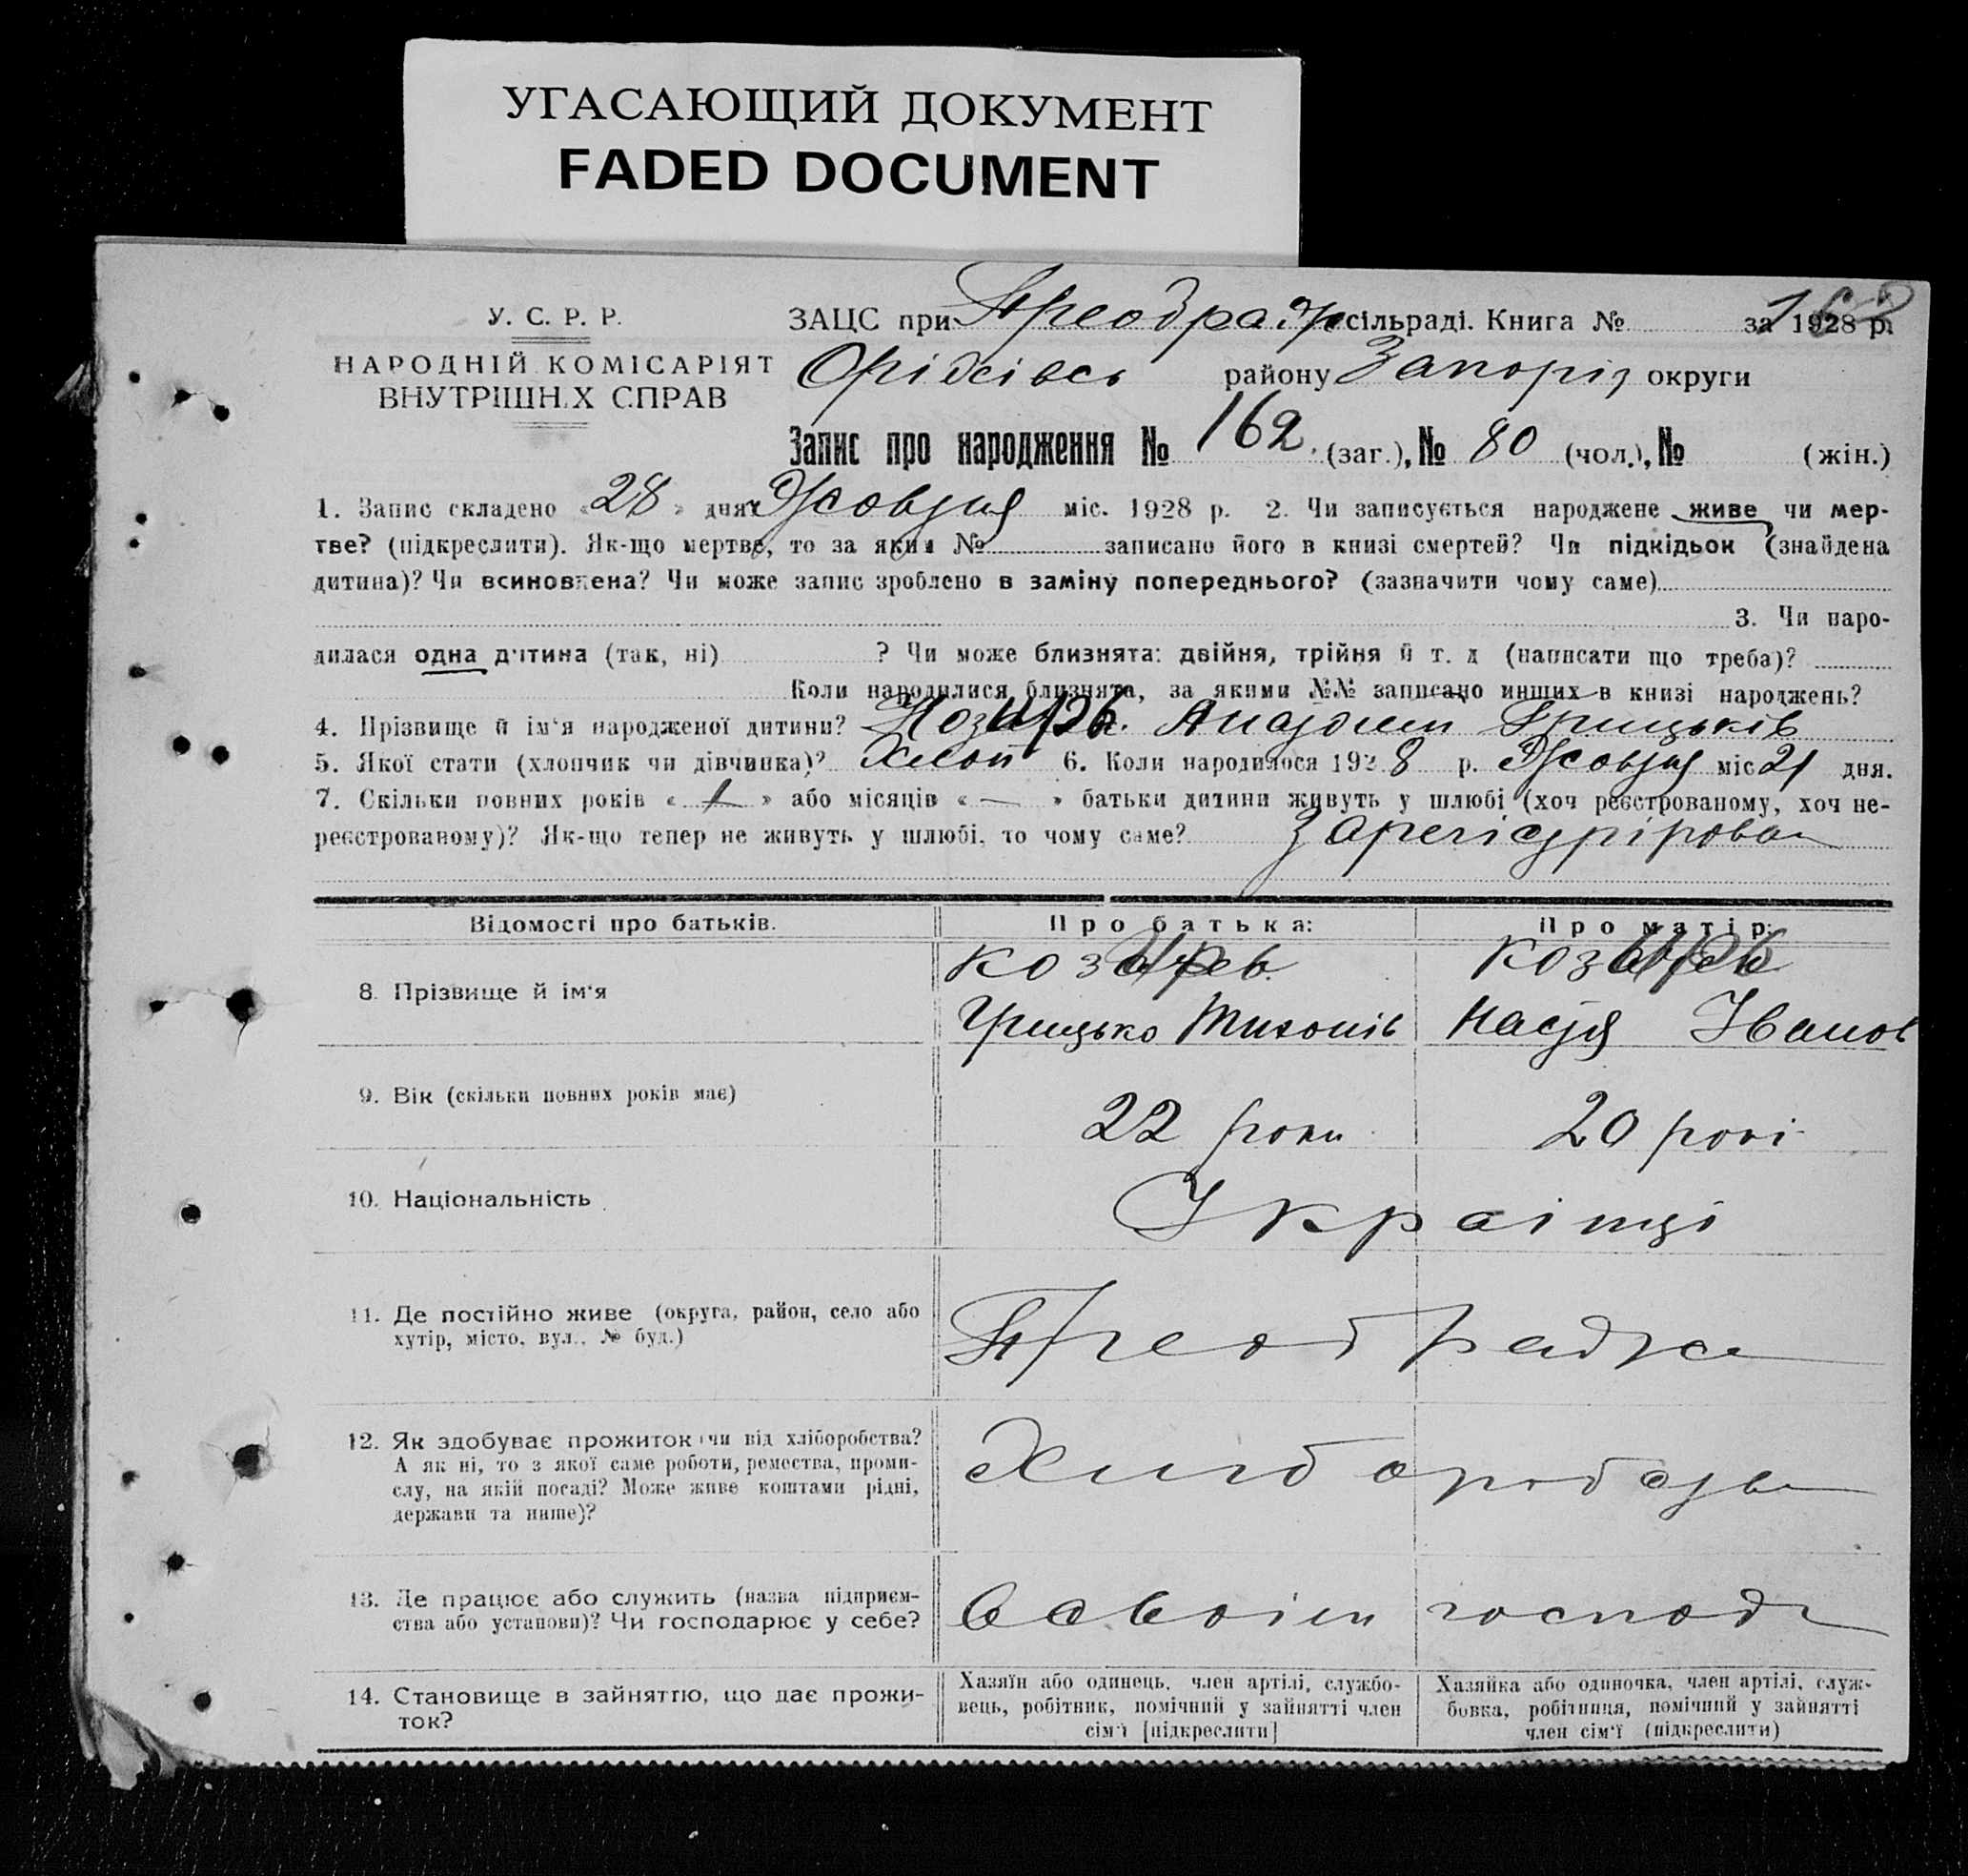 УГАСАЮЩИЙ ДОКУМЕНТ
FADED DOCUMENT
У. С. Р. Р.
НАРОДНІЙ КОМІСАРІЯТ
ВНУТРІШН.Х СПРАВ
ЗАЦС при Преображ сільраді. Книга № за 1928 р.
Оріхівсь району Запоріз округи
Запис про народження № 162 (заг.), № 80 (чол.), № (жін.)
1. Запис складено «28» дня Жовтня міс. 1928 р. 2. Чи записується народжене живе чи мер-
тве? (підкреслити). Як-що мертве, то за яким № записано його в книзі смертей? Чи підкідьок (знайдена
дитина)? Чи всиновлена? Чи може запис зроблено в заміну попереднього? (зазначити чому саме)
3. Чи наро-
дилася одна дитина (так, ні) ? Чи може близнята: двійня, трійня й т. д (написати що треба)?
Коли народилися близнята, за якими №№ записано инших в книзі народжень?
4. Прізвище й ім'я народженої дитини? Анатолій Грицьків
5. Якої стати (хлопчик чи дівчинка)? Хлоп 6. Коли народилося 1928 р. Жовтня міс 21 дня.
7. Скільки повних років «1» або місяців «—» батьки дитини живуть у шлюбі (хоч реєстрованому, хоч не-
реєстрованому)? Як-що тепер не живуть у шлюбі, то чому саме? Зарегістрірован
Відомості про батьків. Про батька: Про матір:
8. Прізвище й ім'я
Грицько Тихонів Настя Іванов
9. Вік (скільки повних років має) 22 роки 20 рокі
10. Національність Українці
11. Де постійно живе (округа, район, село або
хутір, місто, вул., № буд.) Преображе
12. Як здобуває прожиток (чи від хліборобства?
А як ні, то з якої саме роботи, ремества, проми-
слу, на якій посаді? Може живе коштами рідні,
держави та инше)?
Хліборобств
13. Де працює або служить (назва підприєм-
ства або установи)? Чи господарює у себе?
В своїм господ
14. Становище в зайняттю, що дає прожи-
ток?
Хазяїн або одинець, член артілі, службо-
вець, робітник, помічний у зайнятті член
сім'ї [підкреслити]
Хазяйка або одиночка, член артілі, служ-
бовка, робітниця, помічний у зайнятті
член сім'ї (підкреслити)